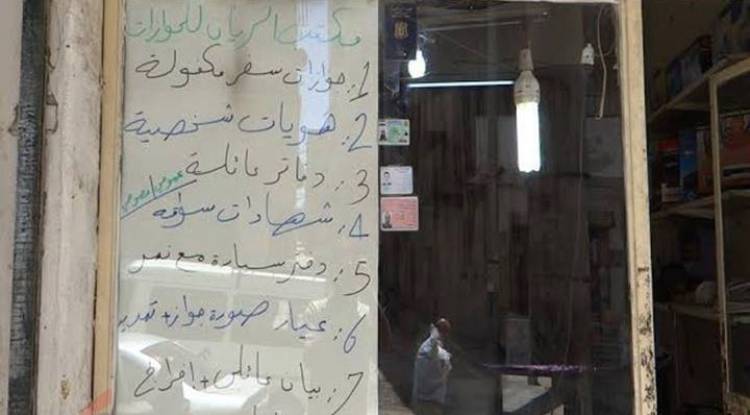 مكتب الريان للجوازات
1: جوازات سفر مكفولة
2: هويات شخصية
3: دفاتر عائلة
4: شهادات سواقة
5: دفتر سيارة مع نمر
6: عيار صورة جواز +
7: بيان عائلي + افراج